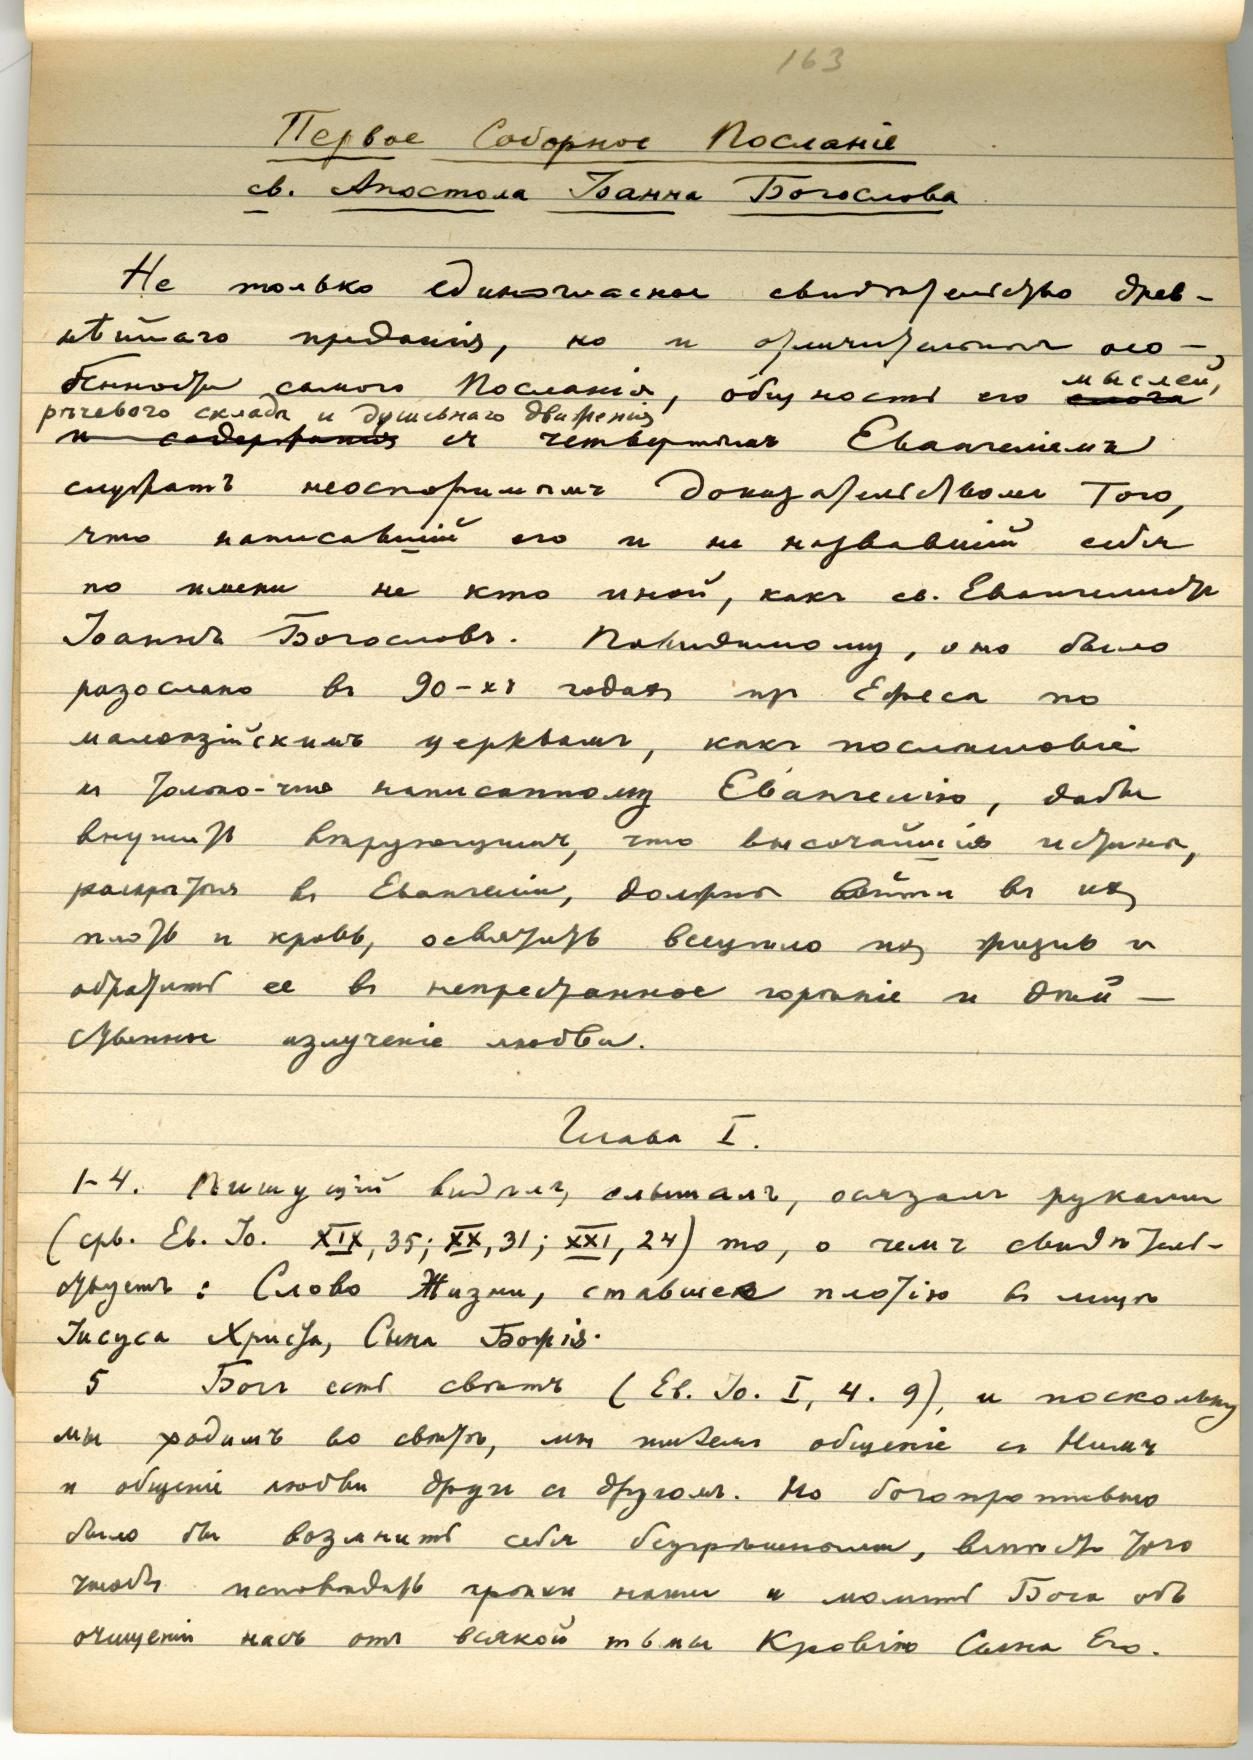 163
Первое Соборное Посланіе
св. Апостола Іоанна Богослова
Не только единогласное свидѣтельство древ-
нѣйшаго преданія, но и отличительныя осо-
бенности самого Посланія, общность его слога мыслей,
рѣчевого склада и душевнаго движенія
и содержанія съ четвертымъ Евангеліемъ
служатъ неоспоримымъ доказательствомъ того,
что написавшій его и не назвавшій себя
по имени не кто иной, какъ св. Евангелистъ
Іоаннъ Богословъ. Повидимому, оно было
разослано въ 90-хъ годахъ изъ Ефеса по
малоазійскимъ церквамъ, какъ послѣсловіе
къ только-что написанному Евангелію, дабы
внушить вѣрующимъ, что высочайшія истины,
раскрытыя въ Евангеліи, должны войти въ ихъ
плоть и кровь, освятить всецѣло ихъ жизнь и
обратить ее въ непрестанное горѣніе и дѣй-
ственное излученіе любви.
Глава I.
1-4. Пишущій видѣлъ, слышалъ, осязалъ руками
(срв. Ев. Іо. XIX, 35; XX, 31; XXI, 24) то, о чемъ свидѣтель-
ствуетъ: Слово Жизни, ставшее плотію въ лицѣ
Іисуса Христа, Сына Божія.
5 Богъ есть свѣтъ (Ев. Іо. I, 4. 9), и поскольку
мы ходимъ во свѣтѣ, мы имѣемъ общеніе съ Нимъ
и общеніе любви другъ съ другомъ. Но богопротивно
было бы возмнить себя безгрѣшными, вмѣсто того
чтобы исповѣдать грѣхи наши и молить Бога объ
очищеніи насъ отъ всякой тьмы Кровію Сына Его.